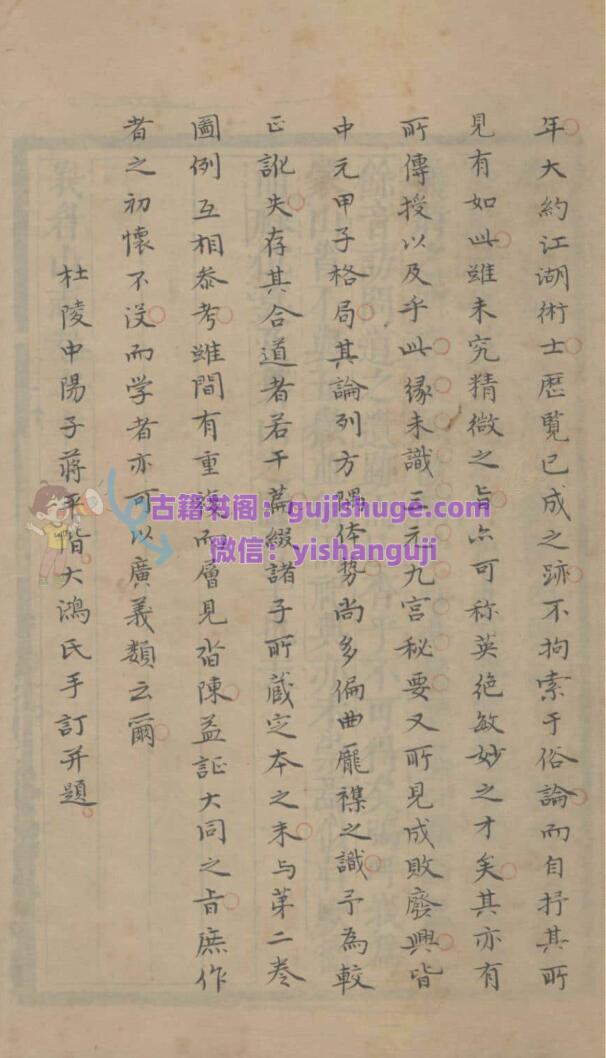 年大約江湖術士歴覧已成之跡不拘索于俗論而自抒其所
見有如此雖未究精微之旨亦可称英絶敏妙之才矣其亦有
所傳授以及乎此緣未識三元九宮秘要又所見成敗廢興皆
中元甲子格局其論列方隅体势尚多偏曲龐襍之識予為較
正訛失存其合道者若干篇綴諸子所藏定本之末与苐二卷
圖例互相叅考雖間有重複而層見沓陳益証大同之旨庶作
者之初懷不没而学者亦可以廣義類云爾
杜陵中陽子蒋平階大鴻氏手訂并題
古籍书阁：gujishuge.com
微信：yishanguji